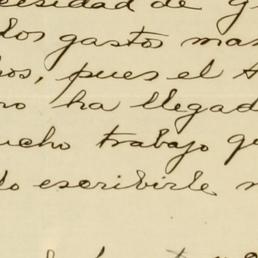 cesidad de g
los gastos mas
os, pues el t
ro ha llegad
ucho trabajo q
do escribirle m